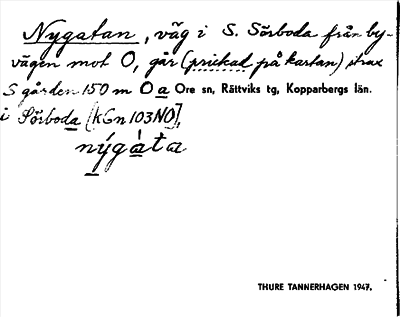 Nygatan, väg i S. Sörboda från by-
vägen mot O, går (prickad på kartan) strax
S gården 150 m O a Ore sn, Rättviks tg, Kopparbergs län.
i Sörboda [kGn 103 NO],
nýgàta
THURE TANNERHAGEN 1947.